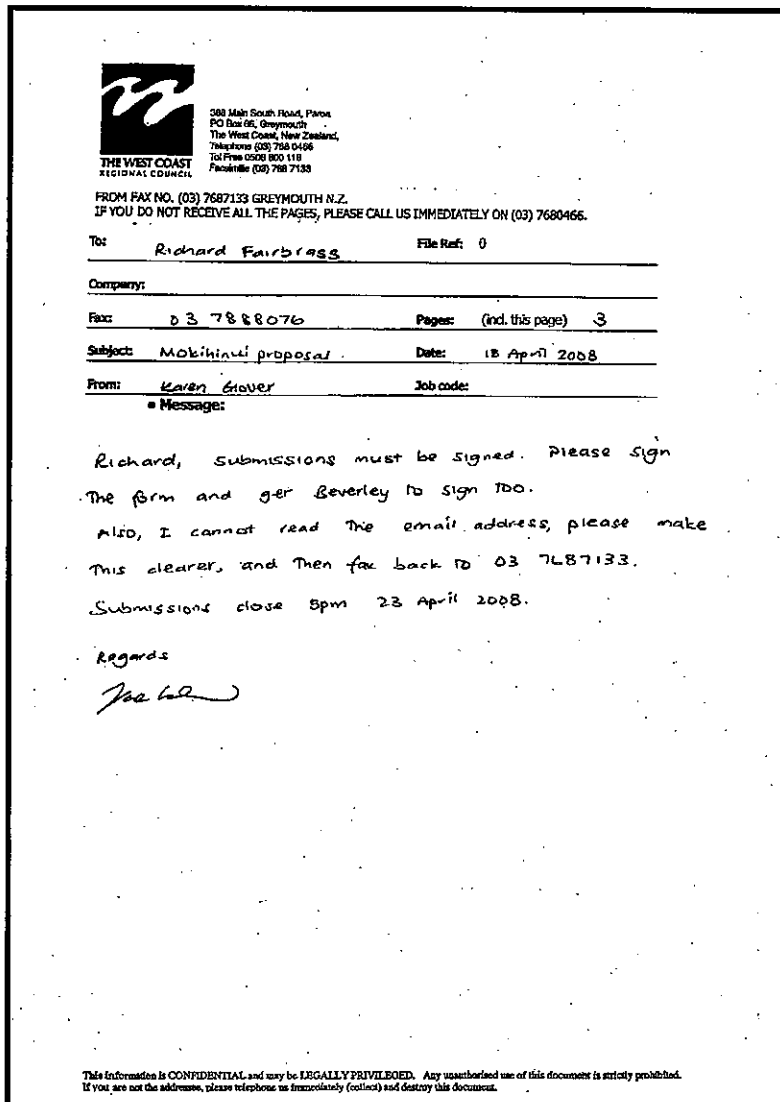 THE WEST COAST
REGIONAL COUNCIL
388 Main South Road, Paroa
PO Box 66, Greymouth
The West Coast, New Zealand,
Telephone (03) 768 0466
Tol Free 0508 800 118
Facsimile (03) 768 7133
FROM FAX NO. (03) 7687133 GREYMOUTH N.Z.
IF YOU DO NOT RECEIVE ALL THE PAGES, PLEASE CALL US IMMEDIATELY ON (03) 7680466.
To: Richard Fairbrass File Ref: 0
Company:
Fax: 03 7888076 Pages: (incl. this page) 3
Subject: Mokihinui proposal. Date: 18 April 2008
From: Karen Glover Job code:
• Message:
Richard, submissions must be signed. Please sign
The form and get Beverley to sign too.
Also, I cannot read the email address, please make
This clearer, and Then fax back to 03 7687133.
Submissions close 5pm 23 April 2008.
Regards
This information is CONFIDENTIAL and may be LEGALLY PRIVILEGED. Any unauthorised use of this document is strictly prohibited.
If you are not the addressee, please telephone us immediately (collect) and destroy this document.